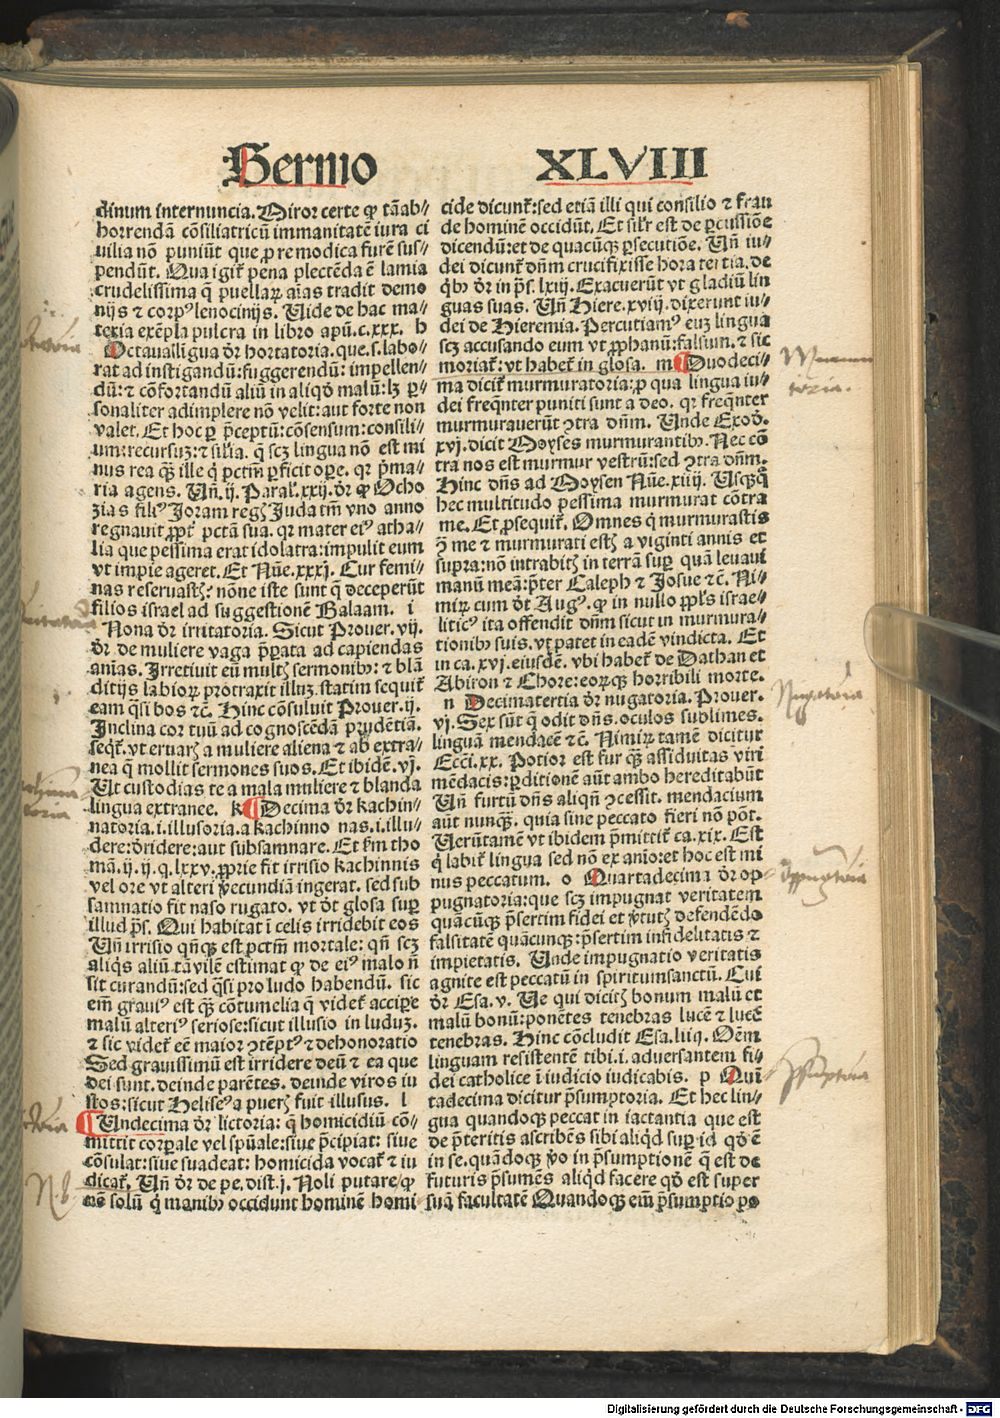 Sermo XLVIII
dinum internuncia. Miror certe ꝙ tãab⸗
horrendã cõsiliatricũ immanitatẽ iura ci
uilia nõ puniũt que ꝓ re modica furẽ sus⸗
pendũt. Qua igit᷑ pena plectẽda ẽ lamia
crudelissima q̃ puellaꝝ aĩas tradit demo
nijs ⁊ corpꝰ lenocinijs. Uide de hac ma⸗
teria exẽpla pulcra in libro apũ.c.xxx. h
Octaua ligua dr̃ hortatoria. que.s.labo⸗
rat ad instigandũ:suggerendũ: impellen⸗
dũ:⁊ cõfortandũ aliũ in aliqd̃ malũ:lꝫ ꝑ⸗
sonaliter adimplere nõ velit:aut forte non
valet. Et hoc ꝑ p̃ceptũ:cõsensum:consili⸗
um:recursuꝫ:⁊ silia. q̃ scꝫ lingua nõ est mi
nus rea q̃ꝫ ille q̇ pctm̃ ꝑficit oꝑe. qꝛ p̃ma⸗
ria agens. Uñ.ij. Paral᷑.xxij. dr̃ ꝙ Ocho
zias filiꝰ Joram regꝭ Juda tm̃ vno anno
regnauit ꝓpt᷑ pctã sua. qꝛ mater eiꝰ atha⸗
lia que pessima erat idolatra:impulit eum
vt impie ageret. Et Nũe.xxxj. Cur femi⸗
nas reseruastꝭ: nõne iste sunt q̃ deceperũt
filios israel ad suggestionẽ Balaam. i
Nona dr̃ irritatoria. Sicut Prouer.vij.
dr̃ de muliere vaga p̃ꝑata ad capiendas
animas. Irretiuit eũ multꝭ sermonibꝰ: ⁊ blã
ditijs labioꝝ protraxit illuꝫ. statim sequit᷑
eam q̃si bos ⁊c̃. Hinc cõsuluit Prouer.ij.
Inclina cor tuũ ad cognoscẽdã prudẽtiã.
seqt᷑. vt eruarꝭ a muliere aliena ⁊ ab extra⸗
nea q̃ mollit sermones suos. Et ibidẽ.vj.
Ut custodias te a mala muliere ⁊ blanda
lingua extranee. k ¶ Decima dr̃ kachin⸗
natoria.i.illusoria.a kachinno nas.i.illu⸗
dere:d̃ridere:aut subsannare. Et k̃m tho
mã.ij.ij.q.lxxv. ꝓprie fit irrisio kachinnis
vel ore vt alteri ṽecundiã ingerat. sed sub
sannatio fit naso rugato. vt dt̃ glosa suꝑ
illud p̃s. Qui habitat ĩ celis irridebit eos
Uñ irrisio qñqꝫ est pctm̃ mortale: qñ scꝫ
aliq̇s aliũ tã vilẽ estimat ꝙ de eiꝰ malo ñ
sit curandũ:sed q̃si pro ludo habendũ. sic
em̃ grauiꝰ est q̃ꝫ cõtumelia q̃ videt᷑ accipe
malũ alteriꝰ seriose:sicut illusio in luduꝫ.
⁊ sic videt᷑ eẽ maior ꝯtẽptꝰ ⁊ dehonoratio
Sed grauissimũ est irridere deũ ⁊ ea que
dei sunt. deinde parẽtes. deinde viros iu
stos:sicut Heliseꝰ a puerꝭ fuit illusus. l
¶ Undecima dr̃ lictoria: q̃ homicidiũ cõ⸗
mittit corꝑale vel spũale:siue p̃cipiat: siue
cõsulat:siue suadeat: homicida vocat᷑ ⁊ iu
dicat᷑. Uñ dr̃ de pe.dist.j. Noli putare ꝙ
eẽ solũ q̇ manibꝰ occidunt hominẽ homi
cide dicunt᷑:sed etiã illi qui consilio ⁊ frau
de hominẽ occidũt. Et silr̃ est de ꝑcussiõe
dicendũ:et de quacũqꝫ ꝑsecutiõe. Uñ iu⸗
dei dicunt᷑ dñm crucifixisse hora tertia. de
q̇bꝰ dr̃ in p̃s.lxiij. Exacuerũt vt gladiũ lin
guas suas. Uñ Hiere.xviij. dixerunt iu⸗
dei de Hieremia. Percutiamꝰ euꝫ lingua
scꝫ accusando eum vt ꝓphanũ:falsum. ⁊ sic
moriat᷑: vt habet᷑ in glosa. m ¶ Duodeci⸗
ma dicit᷑ murmuratoria: ꝓ qua lingua iu⸗
dei freq̃nter puniti sunt a deo. qꝛ freq̃nter
murmurauerũt ꝯtra dñm. Unde Exod̃.
xvj. dicit Moyses murmurantibꝰ. Nec cõ
tra nos est murmur vestrũ:sed ꝯtra dñm.
Hinc dñs ad Moysen Nũe.xiiij. Usq̃q̃
hec multitudo pessima murmurat cõtra
me. Et ꝓsequit᷑. Omnes q̇ murmurastis
ꝯ̃ me ⁊ murmurati estꝭ a viginti annis et
supra:nõ intrabitꝭ in terrã suꝑ quã leuaui
manũ meã:p̃ter Caleph ⁊ Josue ⁊c̃. Ni⸗
miꝝ cum dt̃ Augꝰ. ꝙ in nullo ppl̃s israe⸗
liticꝰ ita offendit dñm sicut in murmura⸗
tionibꝰ suis. vt patet in eadẽ vindicta. Et
in ca.xvj. eiusdẽ. vbi habet᷑ de Dathan et
Abiron ⁊ Chore:eorũqꝫ horribili morte.
n Decimatertia dr̃ nugatoria. Prouer.
vj. Sex sũt q̃ odit dñs. oculos sublimes.
linguã mendacẽ ⁊c̃. Nimiꝝ tamẽ dicitur
Ecci.xx. Potior est fur q̃ꝫ assiduitas viri
mẽdacis:ꝑditionẽ aũt ambo hereditabũt
Uñ furtũ dñs aliqñ ꝯcessit. mendacium
aũt nunqꝫ. quia sine peccato fieri nõ põt.
Uerũtamẽ vt ibidem p̃mittit᷑ ca.xix. Est
q̇ labit᷑ lingua sed nõ ex anio:et hoc est mi
nus peccatum. o Quartadecima dr̃ op⸗
pugnatoria:que scꝫ impugnat veritatem
quãcũqꝫ p̃sertim fidei et ṽtutꝭ defendẽdo
falsitatẽ quãcunqꝫ:p̃sertim infidelitatis ⁊
impietatis. Unde impugnatio veritatis
agnite est peccatũ in spiritumsanctũ. Cui
dr̃ Esa.v. Ue qui dicitꝭ bonum malũ et
malũ bonũ:ponẽtes tenebras lucẽ ⁊ lucẽ
tenebras. Hinc cõcludit Esa.liiij. Oẽm
linguam resistentẽ tibi.i.aduersantem fi⸗
dei catholice ĩ iudicio iudicabis. p Quĩ
tadecima dicitur p̃sumptoria. Et hec lin⸗
gua quandoqꝫ peccat in iactantia que est
de p̃teritis ascribẽs sibi aliq̇d suꝑ id qd̃ ẽ
in se. quãdoqꝫ ṽo in p̃sumptionẽ q̃ est de
futuris p̃sumẽs aliq̇d facere qd̃ est super
suã facultatẽ Quandoqꝫ em̃ p̃sumptio po
Nugatoria
N.b.
Digitalisierung gefördert durch die Deutsche Forschungsgemeinschaft - DFG